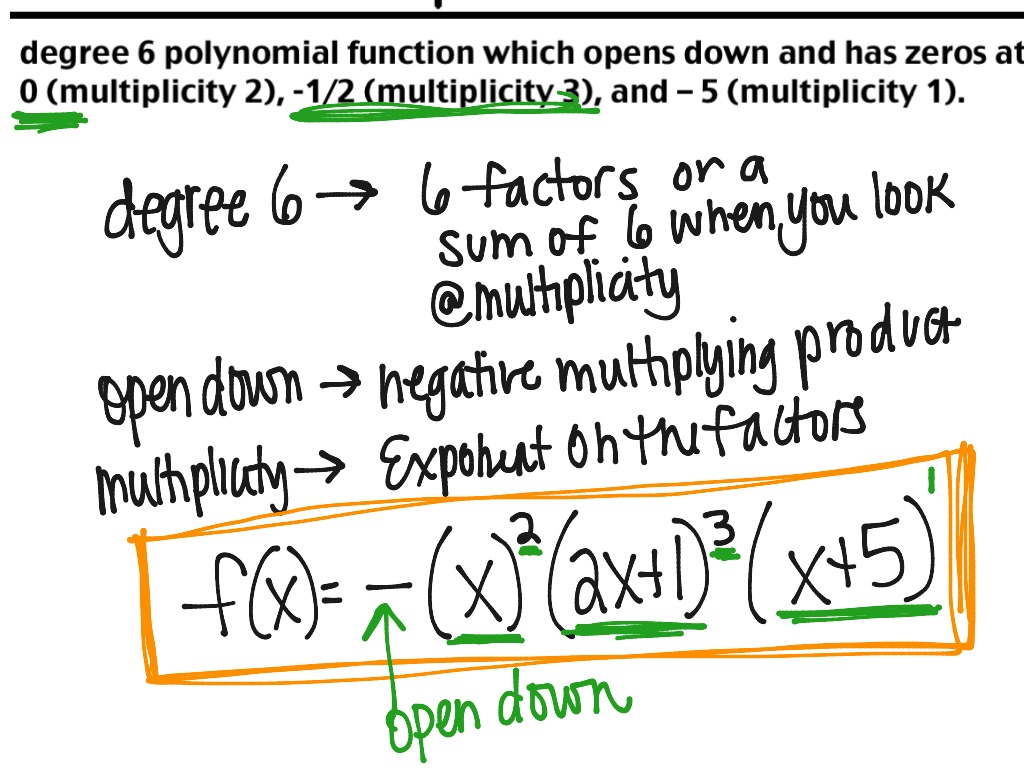 degree 6 polynomial function which opens down and has zeros at
0 (multiplicity 2), -1/2 (multiplicity 3), and – 5 (multiplicity 1).
degree 6 → 6 factors or a
sum of 6 when you look
@multiplicity
open down → negative multiplying product
multiplicity → Exponent on the factors
f(x) = – (x)² (2x+1)³ (x+5)¹
open down